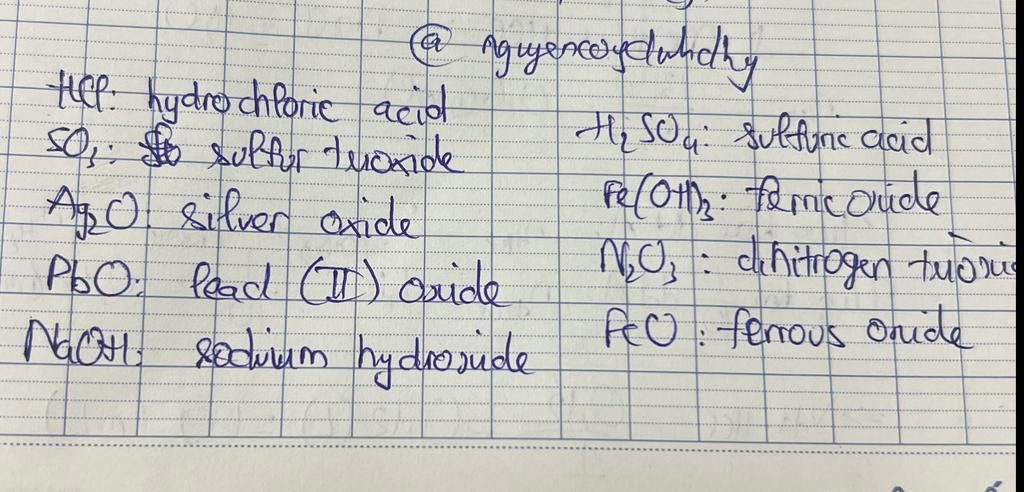 HCl: hydrochloric acid
SO3: sulfur trioxide
Ag2O: silver oxide
PbO: lead (II) oxide
NaOH: sodium hydroxide
H2SO4: sulfuric acid
Fe(OH)3: ferric oxide
N2O3: dinitrogen
FeO: ferrous oxide